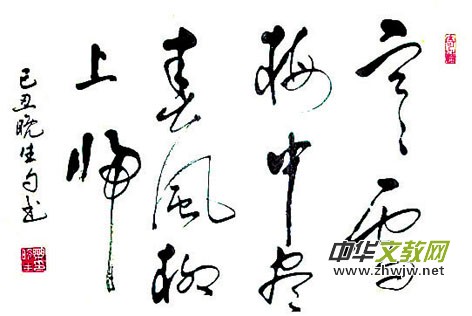 寒雪
梅中尽
春風柳
上归
己丑晚生句书
中华文教网
www.zhwjw.net